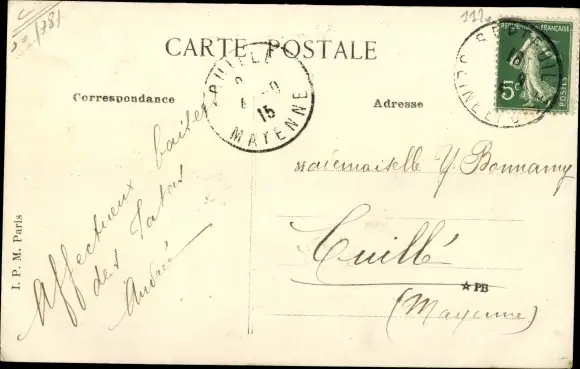 112
CARTE POSTALE
Correspondance
Adresse
CUILLÉ
15
MAYENNE
SEPTEUIL
RÉPUBLIQUE FRANÇAISE
5c
POSTES
Affectueux baisers
des Tatas
André
Mademoiselle Y. Bonnamy
Cuillé
(Mayenne)
★ PB
I. P. M. Paris